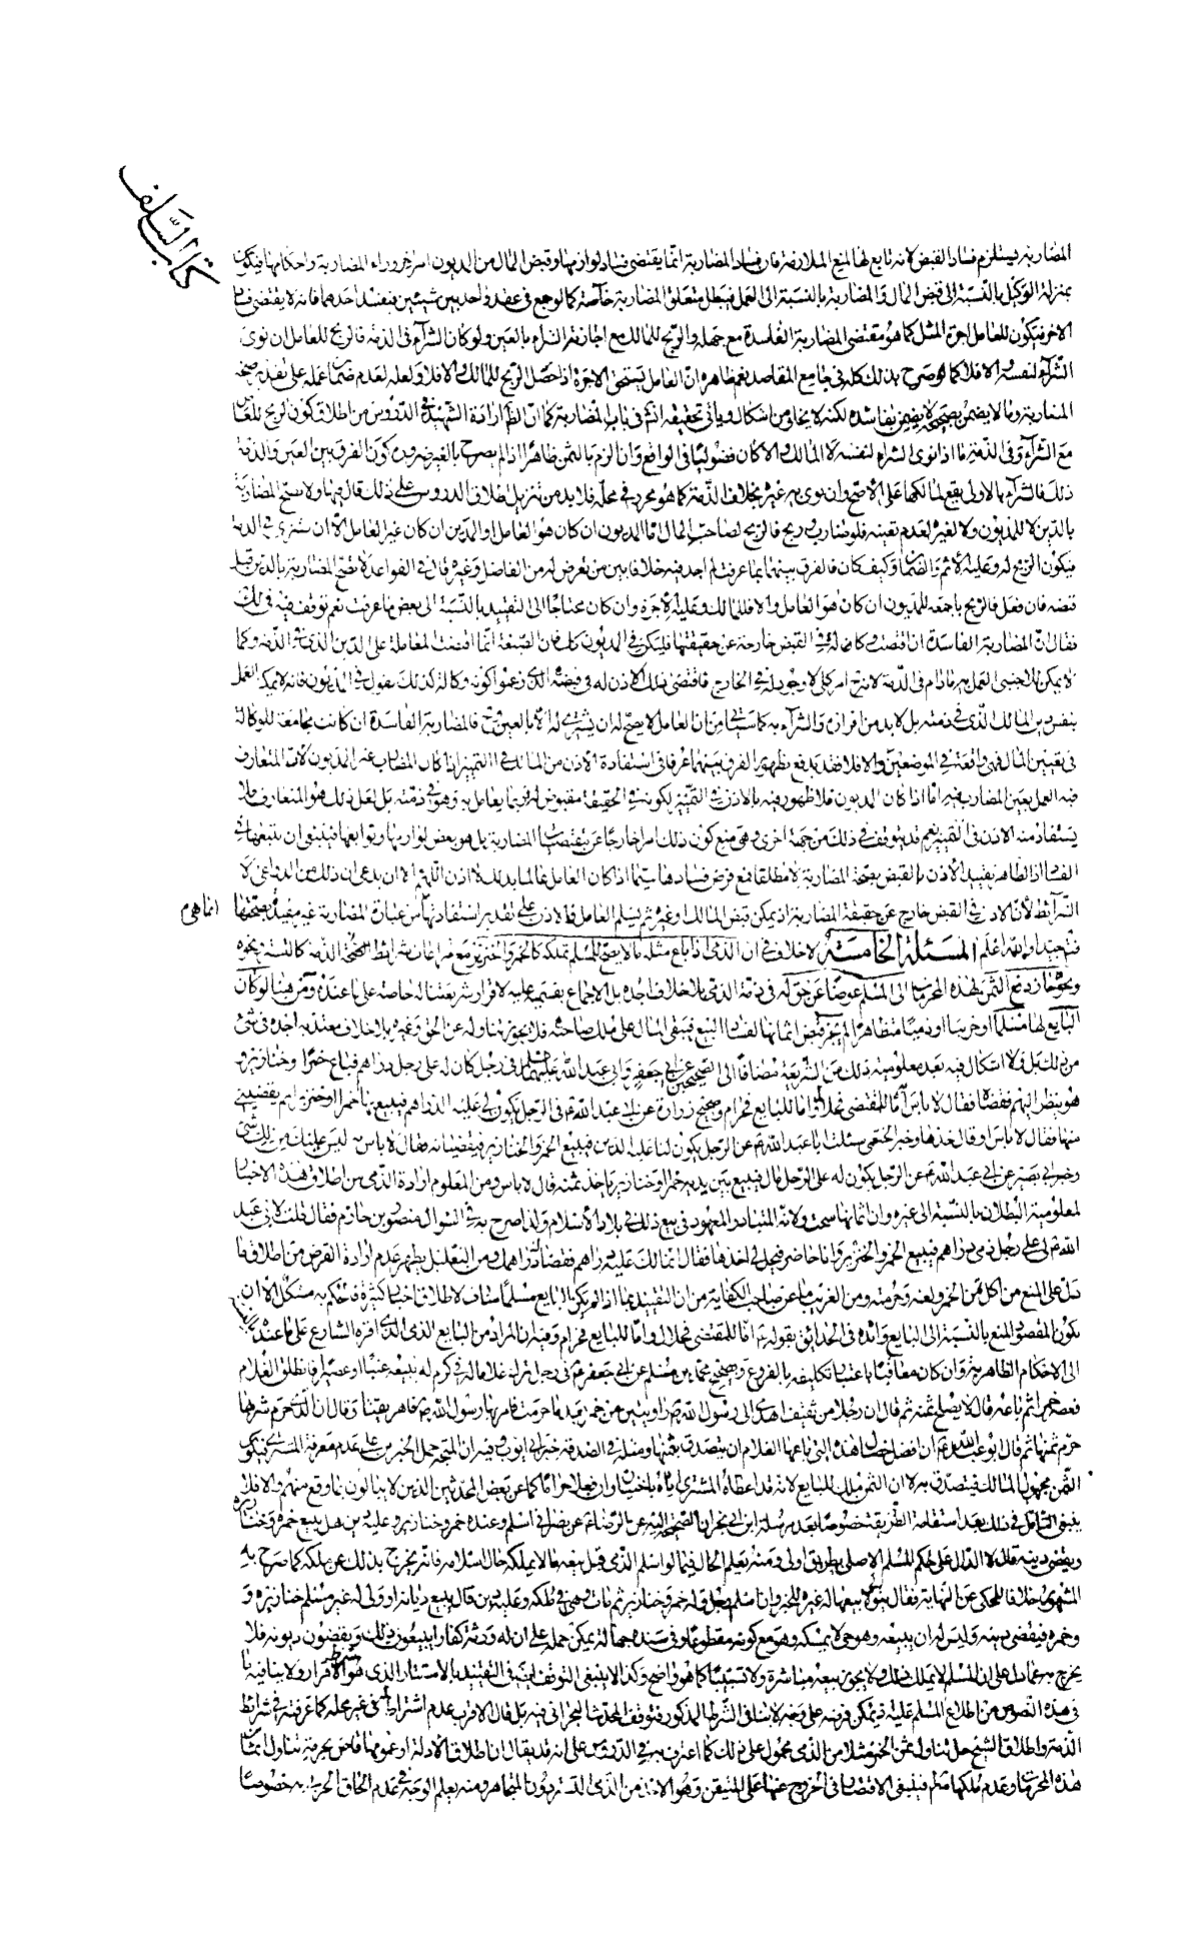 كتاب السَّلف
المضاربة يستلزم فساد القبض لانه تابع لها لمنع الملازمة فان فساد المضاربة انما يقتضى فساد لوازمها وقبض المال من المديون امر اخر وراء المضاربة واحكامها فيكون
بمنزلة الوكيل بالنسبة الى قبض المال والمضاربة بالنسبة الى العمل فيبطل متعلق المضاربة خاصة كما لو جمع فى عقد واحد بين شيئين بفسد احدهما فانه لا يقتضى فساد
الاخر فيكون للعامل اجرة المثل كما هو مقتضى المضاربة الفاسدة مع جهله والربح للمالك مع اجازته الشراء بالعين ولو كان الشراء فى الذمة فالربح للعامل ان نوى
الشراء لنفسه والا فلا كما لو صرح بذلك كله فى جامع المقاصد نعم ظاهره ان العامل يستحق الاجرة اذا حصل الربح للمالك والا فلا ولعله لعدم ضمان عمله على تقدير صحة
المضاربة وما لا يضمن بصحيحه لا يضمن بفاسده لكنه لا يخلو من اشكال وياتى تحقيقه انش فى باب المضاربة كما ان الظ ارادة الشهيد فى الدروس من اطلاق كون الربح للعامل
مع الشراء وفى الذمة ما اذا نوى الشراء لنفسه لا المالك والا كان فضوليا فى الواقع وان الزم بالثمن ظاهرا اذا لم يصرح بالغير ضرورة كون الفرق بين العين والذمة
ذلك فالشراء بالاولى يقع لمالكها على الاصح وان نوى به غيره بخلاف الذمة كما هو محرر فى محله فلا بد من تنزيل اطلاق الدروس على ذلك قال فيها ولا تصح المضاربة
بالدين لا للمديون ولا لغيره لعدم تعينه فلو ضارب وربح فالربح لصاحب المال اما المديون ان كان هو العامل او المدين ان كان غير العامل الا ان يشترى فى الذمة
فيكون الربح له وعليه الاثم والضمان وكيف كان فالفرق بينهما بما عرفت لم اجد فيه خلافا بين من تعرض له من الفاضل وغيره قال فى القواعد لا تصح المضاربة بالدين قبل
قبضه فان فعل فالربح باجمعه للمديون ان كان هو العامل والا فللمالك وعليه الاجرة وان كان محتاجا الى التقييد بالنسبة الى بعض ما عرفت نعم توقف فيه فى لك
فقال ان المضاربة الفاسدة ان اقتضت وكالة فى القبض خارجة عن حقيقتها فليكن فى المديون كك فان الصيغة انما اقتضت المعاملة على الدين الذى فى الذمة وكما
لا يمكن للاجنبى العمل به مادام فى الذمة لانه امر كلى لا وجود له فى الخارج فاقتضى ذلك الاذن له فى قبضه الذى زعموا كونه وكالة كذلك نقول فى المديون فانه لا يمكنه العمل
بنفس دين المالك الذى فى ذمته بل لا بد من افرازه والشراء به كما سياتى من ان العامل لا يصح له ان يشترى الا بالعين وح فالمضاربة الفاسدة ان كانت مجامعة للوكالة
فى تعيين المال فهى واقعة فى الموضعين والا فلا فقد يدفع بظهور الفرق بينهما عرفا فى استفادة الاذن من المالك فى التعيين اذا كان المضارب غير المديون لان المتعارف
فيه العمل بعين المضارب فيه اما اذا كان المديون فلا ظهور فيه بالاذن فى التعيين لكونه فى الحقيقة مقبوض له فيما يعامل به وهو فى ذمته بل لعل ذلك هو المتعارف فلا
يستفاد منه الاذن فى القبض نعم قد يتوقف فى ذلك من جهة اخرى وهى منع كون ذلك امرا خارجا عن مقتضيات المضاربة بل هو بعض لوازمها وتوابعها فينبغى ان يتبعها فى
الفساد اذ الظاهر تقييد الاذن بالقبض بصحة المضاربة لا مطلقا فمع فرض فسادها سيما اذا كان العامل عالما بذلك لا اذن اللهم الا ان يدعى ان ذلك من الدواعى لا
الشرائط لان الاذن فى القبض خارج عن حقيقة المضاربة اذ يمكن قبض المالك او غيره ثم يسلم العامل فالاذن على تقدير استفادتها من عبارة المضاربة غير مقيد بصحتها انما هى
فتم جيدا والله اعلم المسئلة الخامسة لا خلاف فى ان الذمى اذا باع مثله ما لا يصح للمسلم تملكه كالخمر والخنزير مع مراعات شرائط الصحة
دفع الثمن لهذه المحرمات الى المسلم عوضا عن حق له فى ذمة الذمى بلا خلاف اجده بل الاجماع بقسميه عليه لاقرار شريعتنا له خاصة على ما عنده ومن هنا لو كان
البايع لها مسلما او حربيا او ذميا متظاهرا لم يجز قبض اثمانها لفساد البيع فيبقى المال على ملك صاحبه فلا يجوز تناوله عن الحق وغيره بلا خلاف معتد به اجده فى شئ
من ذلك بل ولا اشكال فيه بعد معلومية ذلك من الشريعة مضافا الى الصحيحين عن ابى جعفر وابى عبد الله عليهما السلام فى رجل كان له على رجل دراهم فباع خمرا وخنازير و
هو ينظر اليهم فقضاه فقال لا باس اما للمقتضى فحلال واما للبايع فحرام وصحيح زرارة عن ابى عبد الله ع فى الرجل يكون لى عليه الدراهم فيبيع بها خمرا او خنزيرا ثم يقضينى
منها فقال لا باس او قال خذها وخبر الخثعمى سئلت ابا عبد الله ع عن الرجل يكون لنا عليه الدين فيبيع الخمر والخنازير فيقضينا منه فقال لا باس به ليس عليك من ذلك شئ
وخبر ابى بصير عن ابى عبد الله ع عن الرجل يكون له على الرجل مال فيبيع بين يديه خمرا وخنازير يأخذ ثمنه قال لا باس ومن المعلوم ارادة الذمى من اطلاق هذه الاخبار
لمعلومية البطلان بالنسبة الى غيره وان اثمانها سحت ولانه المتبادر والمعهود فى بيع ذلك فى بلاد الاسلام ولذا صرح به فى السؤال منصور بن حازم فقال قلت لابى عبد
الله ع لى على رجل ذمى دراهم فيبيع الخمر والخنزير وانا حاضر فيحل لى اخذها فقال انما لك عليه دراهم فقضاك دراهمك ومن التعليل يظهر عدم ارادة القرض من اطلاق ما
دل على المنع من اكل ثمن الخمر ولعنه وحرمته ومن الغريب ما عن صاحب الكفاية من ان التقييد بما اذا لم يكن البايع مسلما مناف لاطلاق اخبار كثيرة فالحكم به مشكل الا ان
يكون المقصود المنع بالنسبة الى البايع وايده فى الحدائق بقوله ع اما للمقتضى فحلال واما للبايع فحرام وفيه ان المراد من البايع الذمى الذى اقره الشارع على ما عنده بالنسبة
الى الاحكام الظاهرية وان كان معاقبا باعتبار تكليفه بالفروع وصحيح محمد بن مسلم عن ابى جعفر ع فى رجل ترك غلاما له فى كرم له يبيعه عنبا او عصيرا فانطلق الغلام
فعصر خمرا ثم باعه قال لا يصلح ثمنه ثم قال ان رجلا من ثقيف اهدى الى رسول الله ص راويتين من خمر بعد ما حرمت فامر بها رسول الله ص فاهريقتا وقال ان الذى حرم شربها
حرم ثمنها ثم قال ابو عبد الله ع ان افضل خصال هذه التى باعها الغلام ان يتصدق بثمنها ومثله فى الصدقة خبر ابى ايوب وفيه ان المتجه حمل الخبرين على عدم معرفة المشترى فيكون
الثمن مجهول المالك فيتصدق به لا ان الثمن ملك للبايع لانه قد اعطاه المشترى اياه باختياره وان فعلا حراما كما عن بعض المحدثين الذين لا يبالون بما وقع منهم والا فلا
ينبغى التامل فى ذلك بعد استقامة الطريقة خصوصا بعد مرسلة ابن ابى نجران الصحيحة اليه عن الرضا ع عن نصرانى اسلم وعنده خمر وخنازير وعليه دين هل يبيع خمره وخنازيره
ويقضى دينه قال لا الدال على حكم المسلم الاصلى بطريق اولى ومنه يعلم الحال فيما لو اسلم الذمى قبل بيعه ما لا يملكه حال اسلامه فانه يخرج بذلك عن ملكه كما صرح به
المشهور خلافا للمحكى عن النهاية فقال يتولى بيعها له غيره للخبر وان اسلم رجل وله خمر وخنازير ثم مات وهى فى ملكه وعليه دين قال يبيع ديانه او ولى له غير مسلم خنازيره و
وخمره فيقضى دينه وليس له ان يبيعه وهو حى ولا يمسكه وهو مع كونه مقطوعا وفى سنده جهالة يمكن حمله على ان له ورثة كفارا يبيعون ذلك ويقضون ديونه فلا
يخرج به عما دل على ان المسلم لا يملك ذلك ولا يجوز بيعه مباشرة ولا تسبيبا كما هو واضح وكذا لا ينبغى التوقف فى التقييد بالاستتار الذى هو شرط الاقرار ولا ينافيه ما
فى هذه النصوص من اطلاع المسلم عليه اذ يمكن فرضه على وجه لا ينافى الشرط المذكور فتوقف المحدث البحرانى فيه بل قال الاقرب عدم اشتراطه فى غير محله كما عرفته فى شرائط
الذمة واطلاق الشيخ حل تناول ثمن الخمر مثلا من الذمى محمول على ذلك كما اعترف به فى الدروس على انه قد يقال ان اطلاق الادلة او عمومها قاض بحرمة تناول اثمان
هذه المحرمات وعدم ملكها فينبغى الاقتصار فى الخروج عنها على المتيقن وهو الاخذ من الذمى المستتر دون المتجاهر ومنه يعلم الوجه فى عدم الحاق الحربى به خصوصا